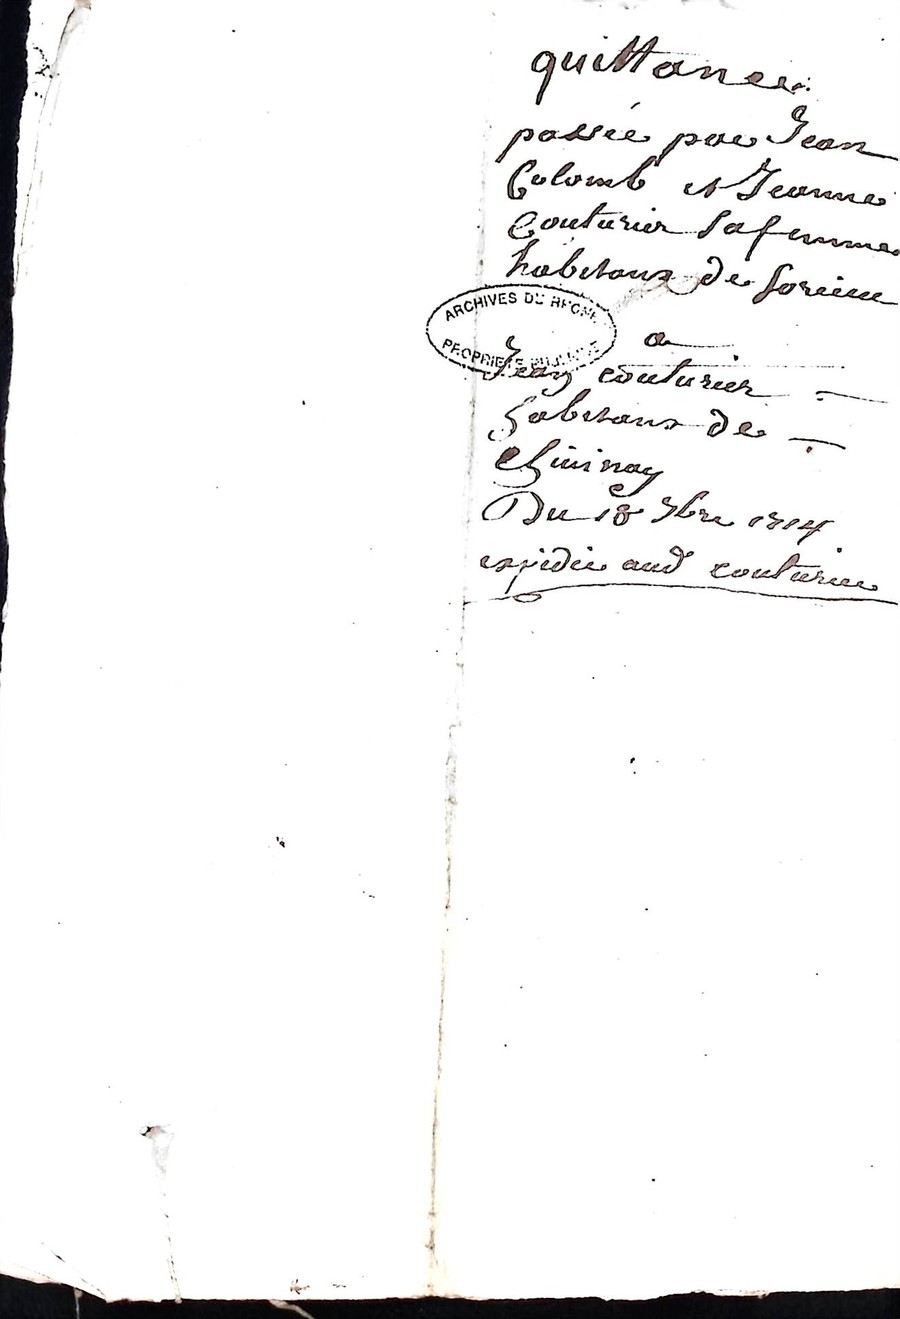 quittance
passée par Jean
Colomb et Jeanne
Couturier sa femme
habitans de
ARCHIVES DU RHONE
PROPRIETE PUBLIQUE
a
Jean couturier
habitans de
Du 18 7bre 1814
expédié aud couturier